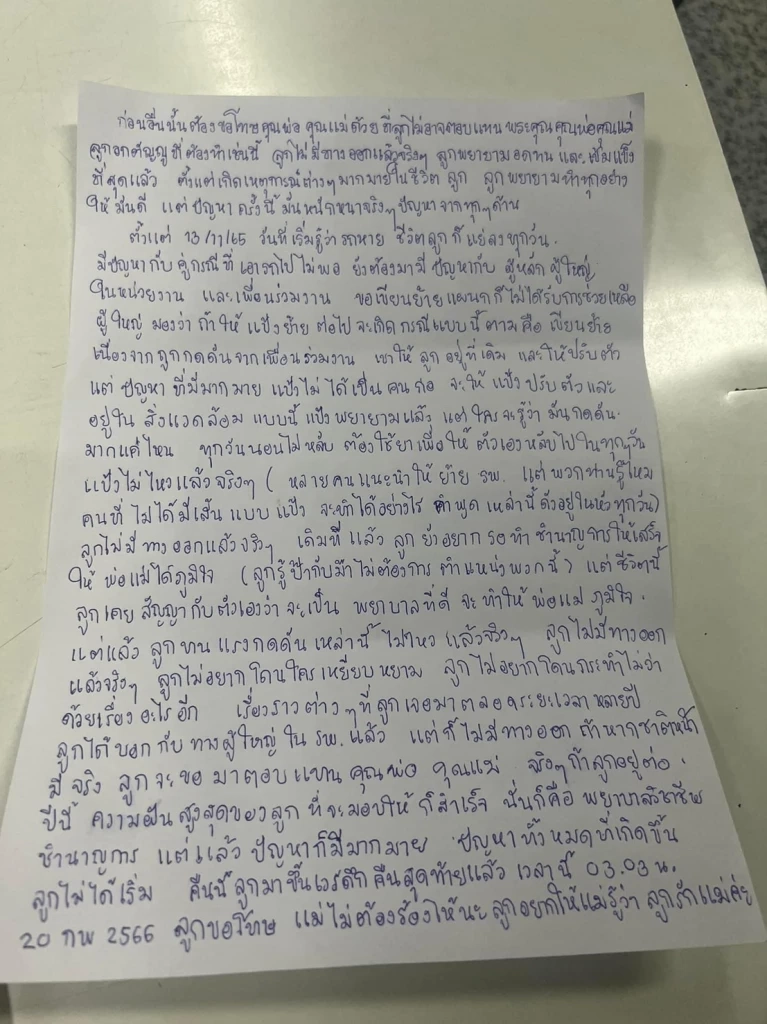 ก่อนอื่นนั้นต้องขอโทษคุณพ่อ คุณแม่ด้วย ที่ลูกไม่อาจตอบแทน พระคุณคุณพ่อคุณแม่
ลูกอกตัญญูที่ต้องทำเช่นนี้ ลูกไม่มีทางออกแล้วจริงๆ ลูกพยายามอดทน และเข้มแข็ง
ที่สุดแล้ว ตั้งแต่เกิดเหตุการณ์ต่างๆมากมายในชีวิต ลูก ลูกพยายามทำทุกอย่าง
ให้มันดี แต่ปัญหาครั้งนี้ มันหนักหนาจริงๆ ปัญหาจากทุกๆด้าน
ตั้งแต่ 13/11/65 วันที่เริ่มรู้ว่ารถหาย ชีวิตลูกก็แย่ลงทุกวัน.
มีปัญหากับคู่กรณีที่เอารถไปไม่พอ ยังต้องมามีปัญหากับ ผู้หลักผู้ใหญ่
ในหน่วยงาน และเพื่อนร่วมงาน ขอเขียนย้ายแผนกก็ไม่ได้รับการช่วยเหลือ
ผู้ใหญ่ มองว่า ถ้าให้ แป้งย้าย ต่อไปจะเกิดกรณีแบบนี้ตามคือ เขียนย้าย
เนื่องจากถูกกดดันจากเพื่อนร่วมงาน เขาให้ ลูก อยู่ที่เดิม และให้ปรับตัว
แต่ ปัญหา ที่มีมากมาย แป้งไม่ได้เป็นคนก่อ จะให้ แป้งปรับตัวและ
อยู่ใน สิ่งแวดล้อม แบบนี้ แป้งพยายามแล้ว แต่ใครจะรู้ว่า มันกดดัน.
มากแค่ไหน ทุกวันนอนไม่หลับ ต้องใช้ยาเพื่อให้ ตัวเองหลับไปในทุกๆวัน
แป้งไม่ไหวแล้วจริงๆ ( หลายคนแนะนำให้ย้าย รพ. แต่พวกท่านรู้ไหม
คนที่ไม่ได้มีเส้น แบบ แป้ง จะทำได้อย่างไร คำพูด เหล่านี้ ดังอยู่ในหัวทุกวัน)
ลูกไม่มีทางออกแล้วจริงๆ เดิมทีแล้ว ลูกยังอยากรอทำชำนาญการให้เสร็จ
ให้ พ่อแม่ได้ภูมิใจ (ลูกรู้ป๊ากับม๊าไม่ต้องการ ตำแหน่งพวกนี้) แต่ ชีวิตนี้
ลูกเคย สัญญากับตัวเองว่าจะเป็น พยาบาลที่ดี จะทำให้พ่อแม่ ภูมิใจ.
แต่แล้ว ลูกทนแรงกดดันเหล่านี้ ไม่ไหว แล้วจริงๆ ลูกไม่มีทางออก
แล้วจริงๆ ลูกไม่อยากโดนใครเหยียบหยาม ลูกไม่อยากโดนกระทำไม่ว่า
ด้วยเรื่องอะไรอีก เรื่องราวต่างๆที่ลูกเจอมาตลอดระยะเวลาหลายปี
ลูกได้บอกกับทางผู้ใหญ่ใน รพ. แล้ว แต่ก็ไม่มีทางออก ถ้าหากชาติหน้า
มีจริง ลูกจะขอมาตอบแทนคุณพ่อ คุณแม่ จริงๆถ้าลูกอยู่ต่อ.
ปีนี้ ความฝันสูงสุดของลูก ที่จะมอบให้ ก็สำเร็จ นั่นก็คือ พยาบาลวิชาชีพ
ชำนาญการ แต่แล้ว ปัญหาก็มีมากมาย ปัญหาทั้งหมดที่เกิดขึ้น
ลูกไม่ได้เริ่ม คืนนี้ลูกมาขึ้นเวรดึกคืนสุดท้ายแล้ว เวลานี้ 03.03 น.
20 กพ 2566 ลูกขอโทษ แม่ไม่ต้องร้องไห้นะ ลูกอยากให้แม่รู้ว่า ลูกรักแม่ค่ะ